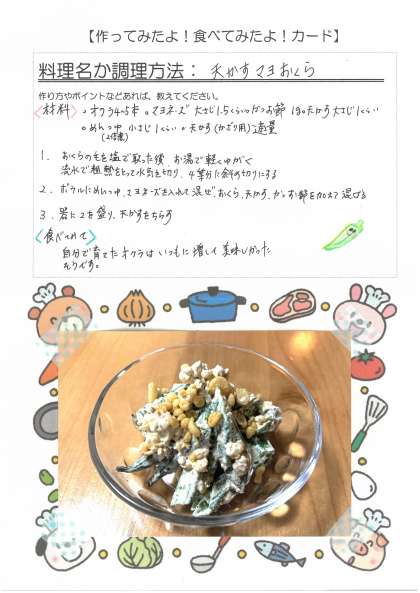 【作ってみたよ！食べてみたよ！カード】
料理名か調理方法： 天かすマヨおくら
作り方やポイントなどあれば、教えてください。
〈材料〉 。オクラ4〜5本 。マヨネーズ 大さじ1.5くらい。かつお節 1g。天かす大さじ1くらい
。めんつゆ 小さじ1くらい。天かす(かざり用)適量
(2倍濃)
1. おくらの毛を塩で取った後、お湯で軽くゆがく
流水で粗熱をとって水気を切り、4等分に斜め切りにする
2. ボウルにめんつゆ、マヨネーズを入れて混ぜ、おくら、天かす、かつお節を加えて混ぜる
3. 器に2を盛り、天かすをちらす
〈食べてみて〉
自分で育てたオクラはいつもに増して美味しかった
そうです。